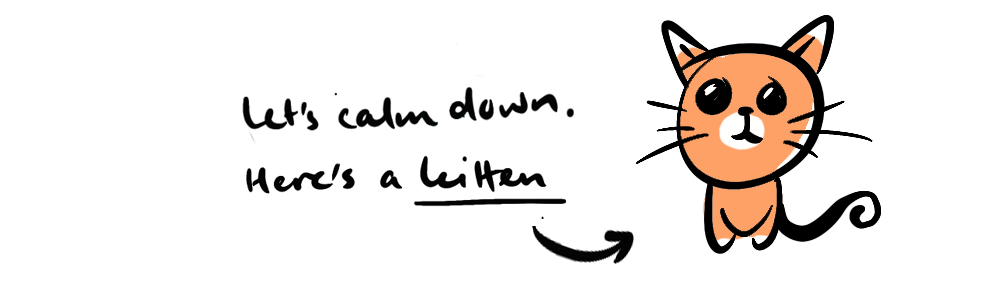 Let's calm down.
Here's a kitten